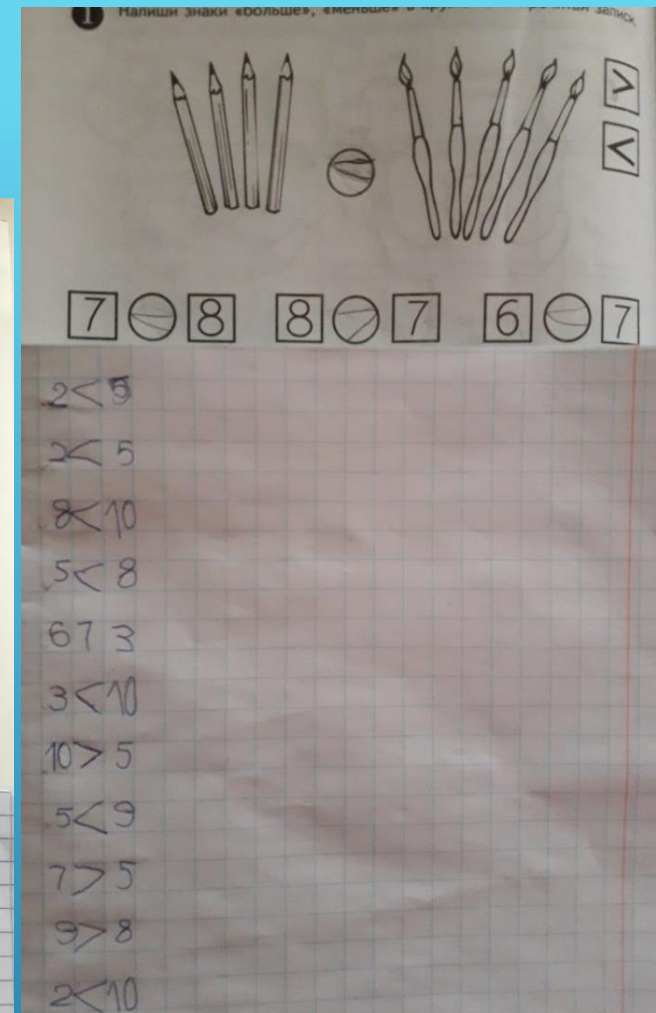 1 Напиши знаки «больше», «меньше» в записи.
>
<
7 < 8 8 > 7 6 < 7
2 < 5
2 < 5
8 < 10
5 < 8
6 7 3
3 < 10
10 > 5
5 < 9
7 > 5
9 > 8
2 < 10